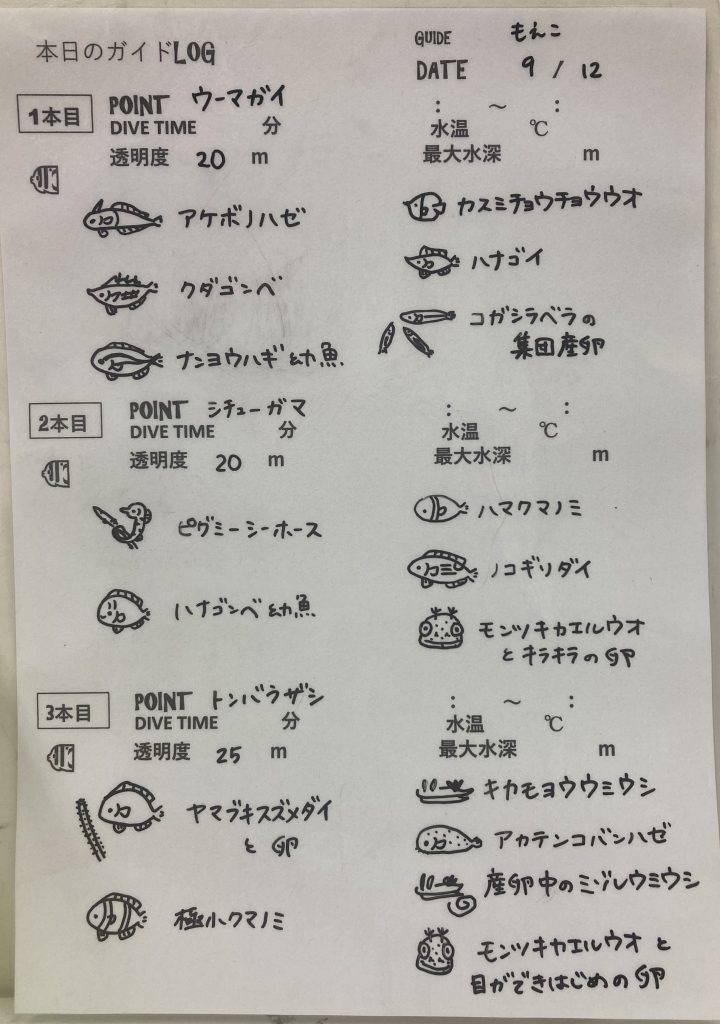 本日のガイドLOG
GUIDE もえこ
DATE 9 / 12
1本目
POINT ウーマガイ
DIVE TIME 分
透明度 20 m
: ～ :
水温 ℃
最大水深 m
アケボノハゼ
クダゴンベ
ナンヨウハギ幼魚
カスミチョウチョウウオ
ハナゴイ
コガシラベラの
集団産卵
2本目
POINT シチューガマ
DIVE TIME 分
透明度 20 m
: ～ :
水温 ℃
最大水深 m
ピグミーシーホース
ハナゴンベ幼魚
ハマクマノミ
ノコギリダイ
モンツキカエルウオ
とキラキラの卵
3本目
POINT トンバラザシ
DIVE TIME 分
透明度 25 m
: ～ :
水温 ℃
最大水深 m
ヤマブキスズメダイ
と 卵
極小クマノミ
キカモヨウウミウシ
アカテンコバンハゼ
産卵中のミゾレウミウシ
モンツキカエルウオ と
目ができはじめの卵